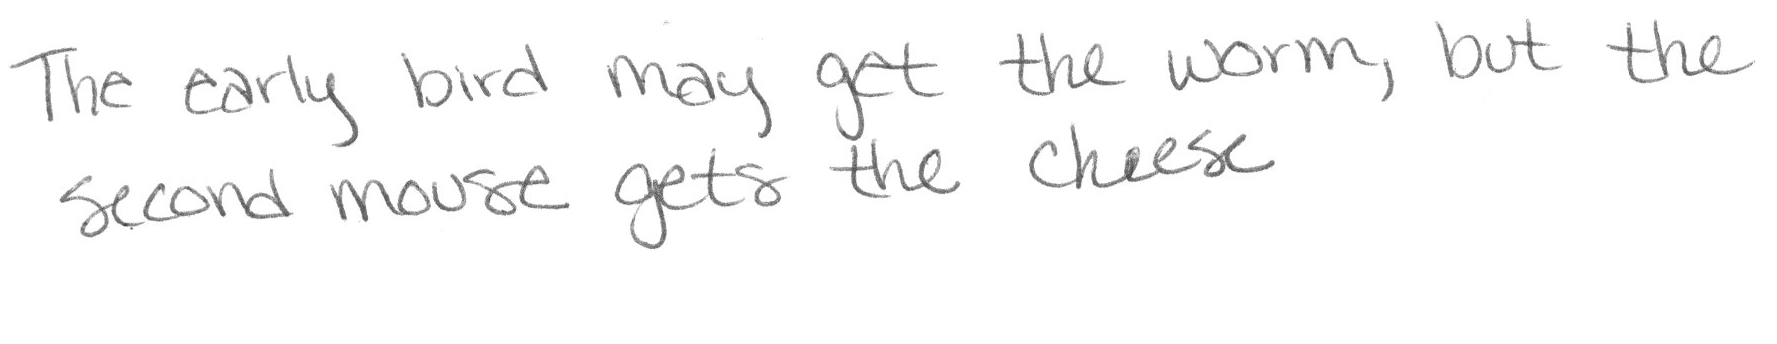 The early bird may get the worm, but the
second mouse gets the cheese